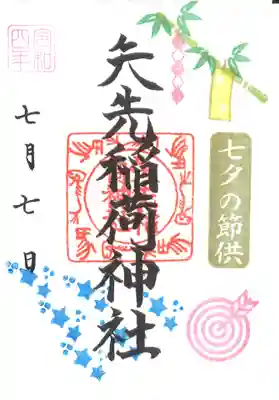 七夕の節供
矢先稲荷神社
令和四年
七月七日